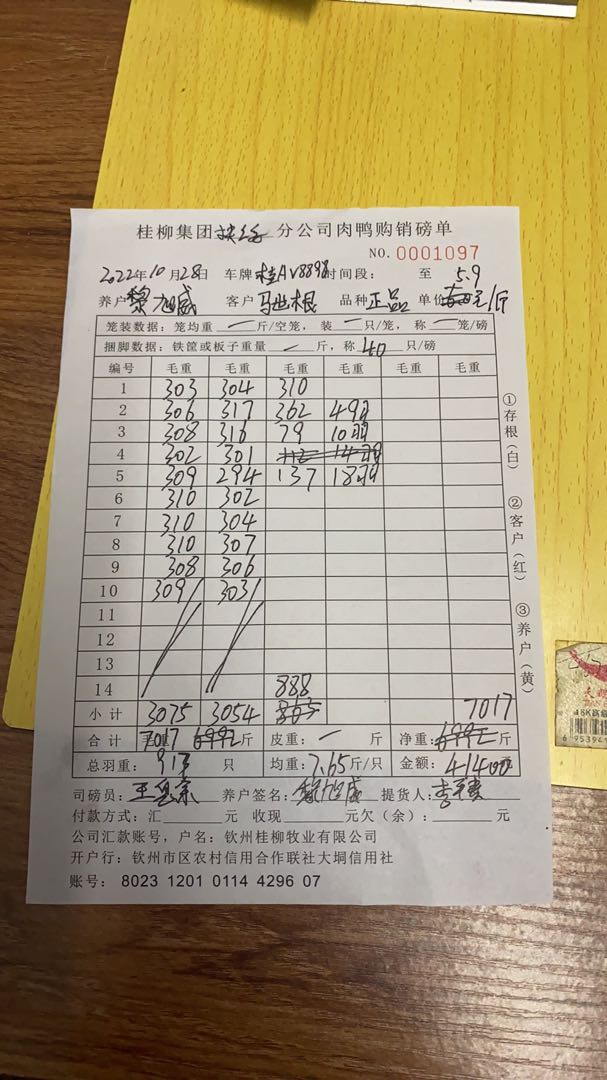 桂柳集团 分公司肉鸭购销磅单
NO. 0001097
2022年10月28日 车牌 桂AV8898 时间段: 至 5.9
养户 黎旭威 客户 马世根 品种 正品 单价 元/斤
笼装数据: 笼均重 一 斤/空笼, 装 一 只/笼, 称 一 笼/磅
捆脚数据: 铁筐或板子重量 一 斤, 称 40 只/磅
编号 毛重 毛重 毛重 毛重 毛重 毛重
1 303 304 310
2 306 317 362 49羽
3 308 316 79 10羽
4 302 301 112 14羽
5 309 294 137 18羽
6 310 302
7 310 304
8 310 307
9 308 306
10 309 303
11
12
13
14 888
小计 3075 3054 7017
合计 7017 6992 斤 皮重: 一 斤 净重: 6992 斤
总羽重: 913 只 均重: 7.65 斤/只 金额: 41400
司磅员: 养户签名: 黎旭威 提货人:
付款方式: 汇 元 收现 元欠(余): 元
公司汇款账号, 户名: 钦州桂柳牧业有限公司
开户行: 钦州市区农村信用合作联社大垌信用社
账号: 8023 1201 0114 4296 07
①存根(白)
②客户(红)
③养户(黄)